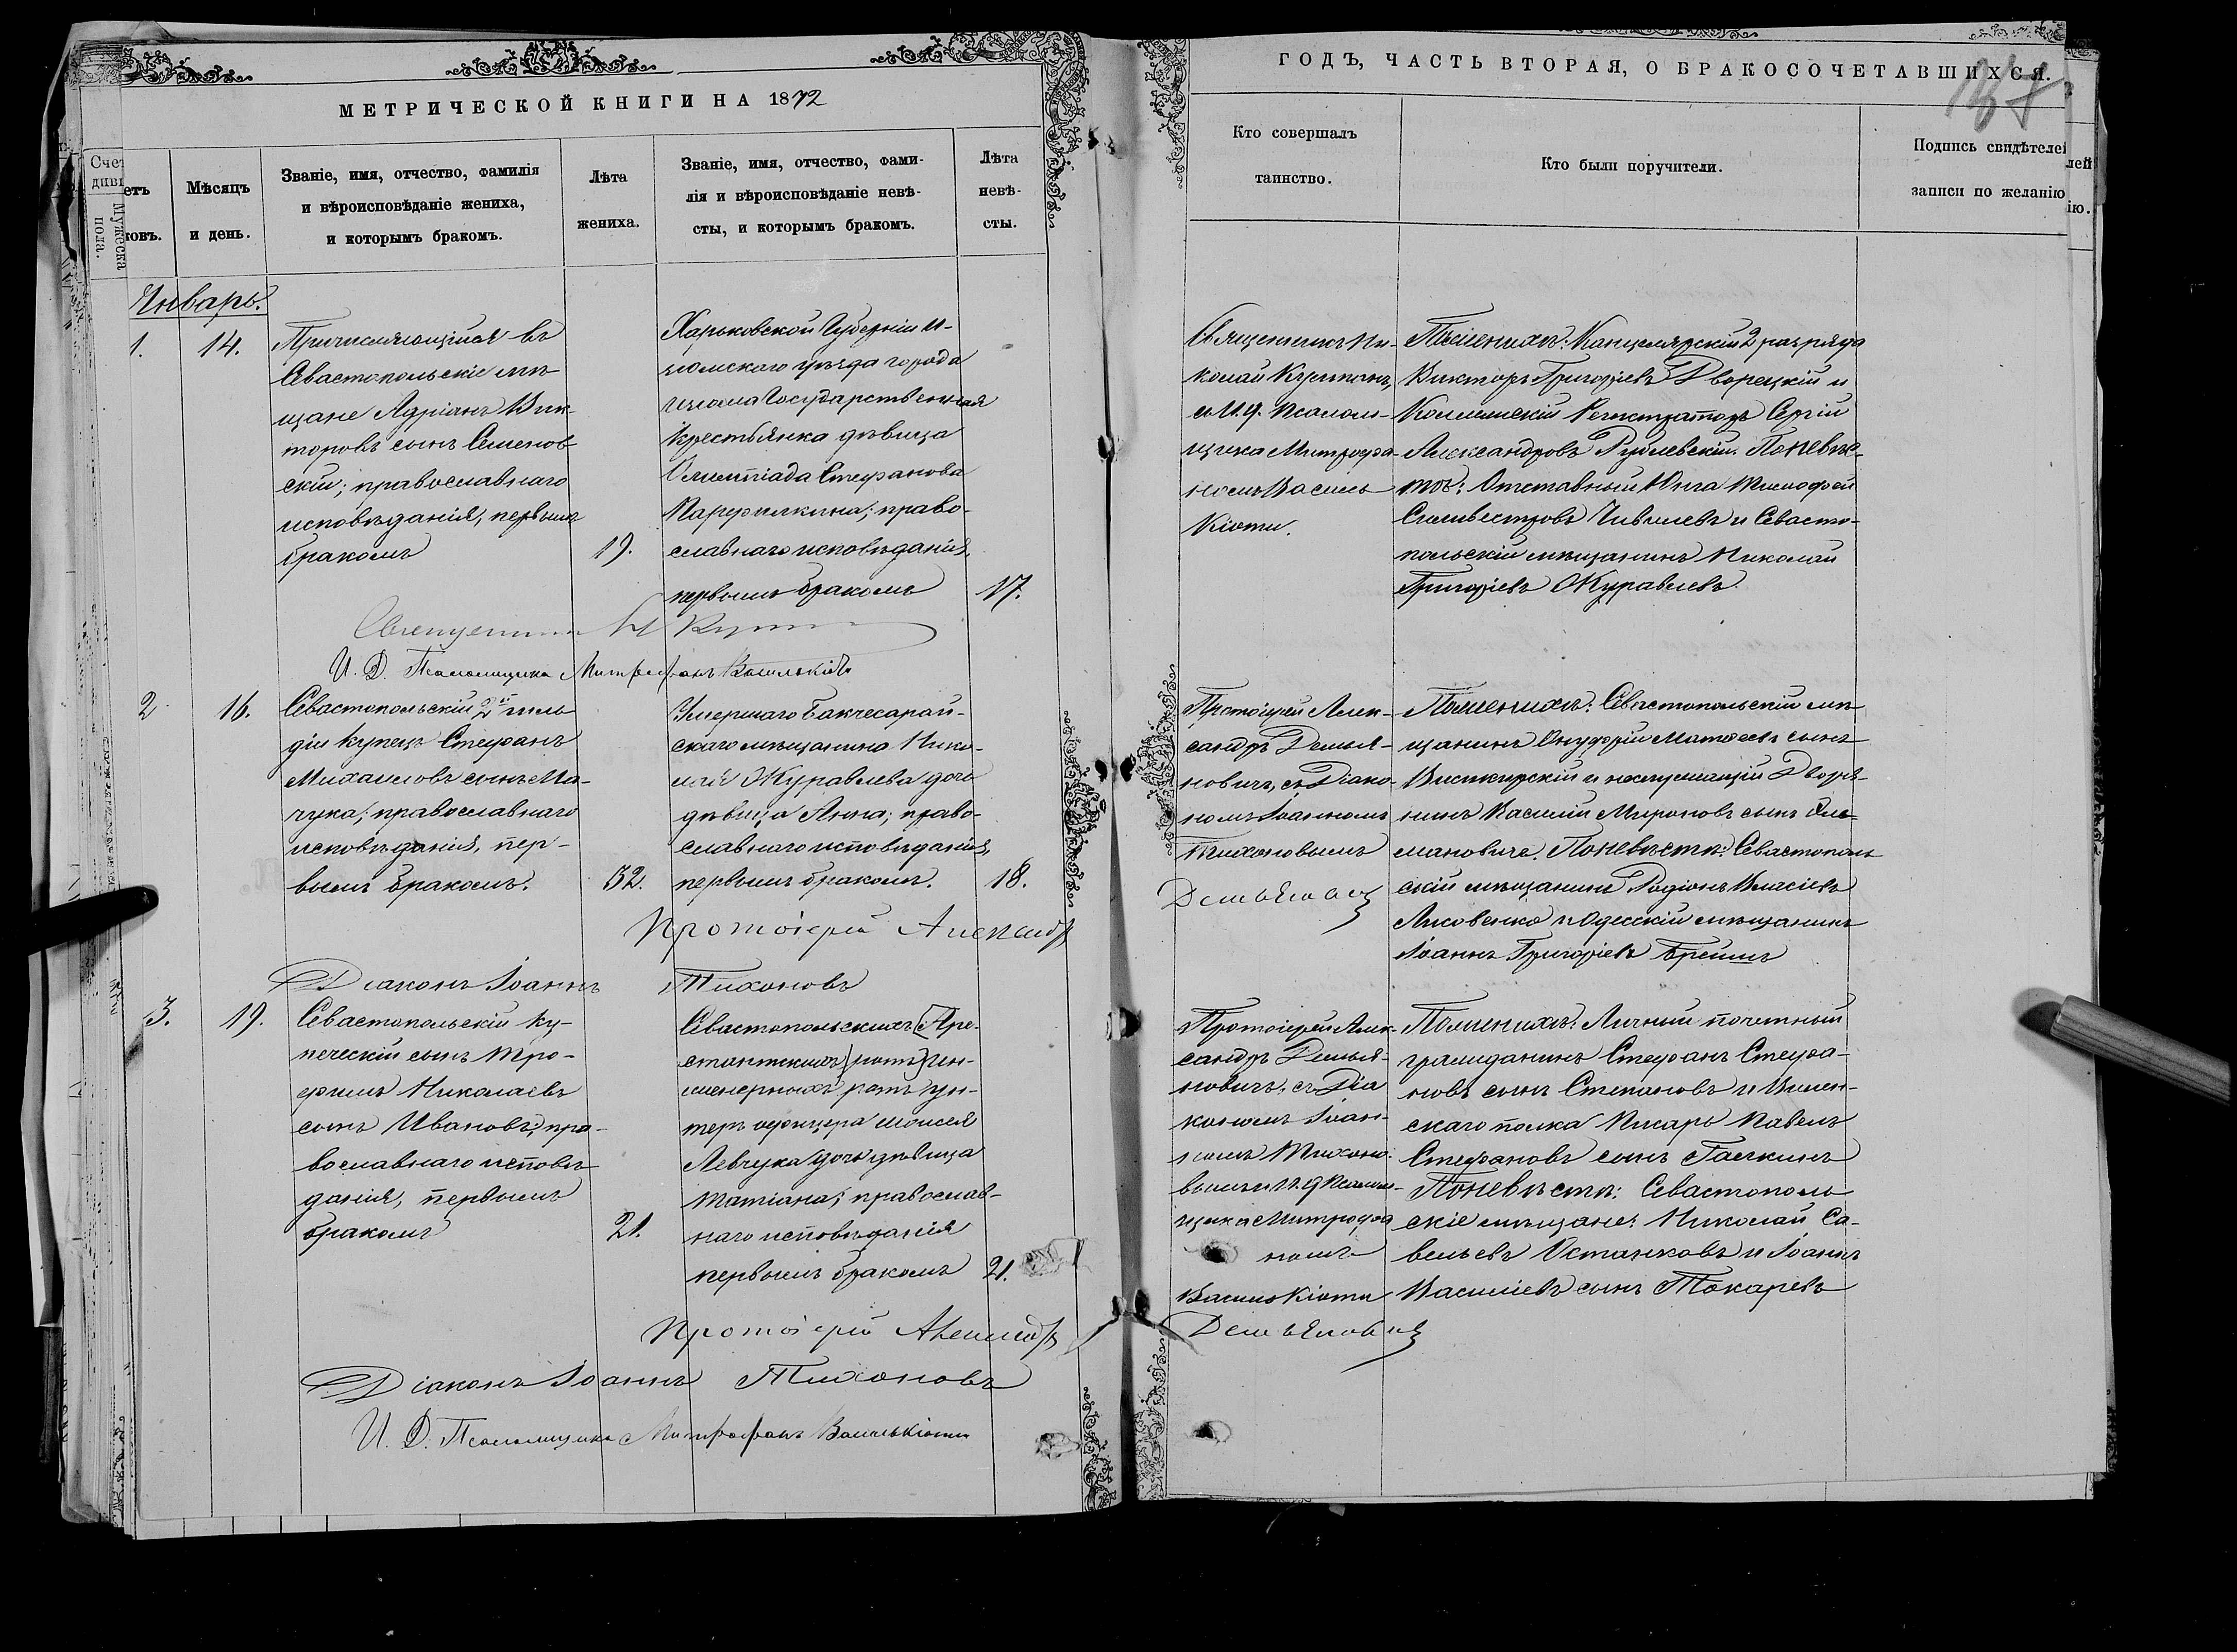 МЕТРИЧЕСКОЙ КНИГИ НА 1872
ГОДЪ, ЧАСТЬ ВТОРАЯ, О БРАКОСОЧЕТАВШИХСЯ.
Мѣсяцъ
и день.
Званіе, имя, отчество, фамилія
и вѣроисповѣданіе жениха,
и которымъ бракомъ.
Лѣта
жениха.
Званіе, имя, отчество, фами-
лія и вѣроисповѣданіе невѣ-
сты, и которымъ бракомъ.
Лѣта
невѣ-
сты.
Кто совершалъ
таинство.
Кто были поручители.
Подпись свидѣтелей
записи по желанію
Январь.
1.
14.
Причисляющійся въ
Севастопольскіе мѣ-
щане Адріанъ Вик-
торовъ сынъ Семенов-
скій; православнаго
исповѣданія, первымъ
бракомъ
19.
Харьковской Губерніи И-
зюмскаго уѣзда города
Изюма Государственная
крестьянка дѣвица
Олимпіада Стефанова
Парфилкина; право-
славнаго исповѣданія,
первымъ бракомъ
17.
Священникъ Ни-
колай
и И.д. Псалом-
щика Митрофа-
номъ Василь
Кіоти.
По женихѣ: Канцелярскій 2 разряда
Викторъ Григорьевъ Дворецкій и
Коллежскій Регистраторъ Сергій
Александровъ Рублевскій. По невѣс-
тѣ: Отставный Юнга Тимофей
Сильвестровъ Чивилевъ и Севасто-
польскій мѣщанинъ Николай
Григоріевъ Журавлевъ.
Священникъ Н
И. Д. Псаломщика Митрофанъ Василькіоти
2
16.
Севастопольскій 2й гиль-
діи купецъ Стефанъ
Михайловъ сынъ Ма-
чука; православнаго
исповѣданія, пер-
вымъ бракомъ.
52.
Умершаго Бакчесарай-
скаго мѣщанина Нико-
лая Журавлева дочь
дѣвица Анна; право-
славнаго исповѣданія,
первымъ бракомъ.
18.
Протоіерей Алек-
сандръ Демья-
новичъ, съ Діако-
номъ Іоанномъ
Тихоновымъ
По женихѣ: Севастопольскій мѣ-
щанинъ Онуфрій Матвѣевъ сынъ
и неслужащій Дворя-
нинъ Василій Мироновъ сынъ
По невѣстѣ: Севастополь
скій мѣщанинъ Родіонъ Власіевъ
Лисовенко и Одесскій мѣщанинъ
Іоаннъ Григоріевъ
Протоіерей Александръ Демьяновичъ
Діаконъ Іоаннъ Тихоновъ
3.
19.
Севастопольскій ку-
печескій сынъ Тро-
фимъ Николаевъ
сынъ Ивановъ; пра-
вославнаго исповѣ-
данія, первымъ
бракомъ
21.
Севастопольскихъ (Аре-
стантскихъ) (ротъ) Ин-
женерныхъ ротъ ун-
теръ офицера Моисея
Левчука дочь дѣвица
Татіана; православ-
наго исповѣданія
первымъ бракомъ
21.
Протоіерей Алек-
сандръ Демья-
новичъ, съ Діа
кономъ Іоан-
номъ Тихоно-
вымъ и И.д. Псалом-
щика Митрофа
номъ
Василькіоти
По женихѣ: Личный почетный
гражданинъ Стефанъ Стефа-
новъ сынъ Степановъ и Вилен-
скаго полка Писарь Павелъ
Стефановъ сынъ Галкинъ
По невѣстѣ: Севастополь
скіе мѣщане: Николай Са-
вельевъ Останковъ и Іоаннъ
Василіевъ сынъ Токаревъ
Протоіерей Александръ Демьяновичъ
Діаконъ Іоаннъ Тихоновъ
И. Д. Псаломщика Митрофанъ Василькіоти